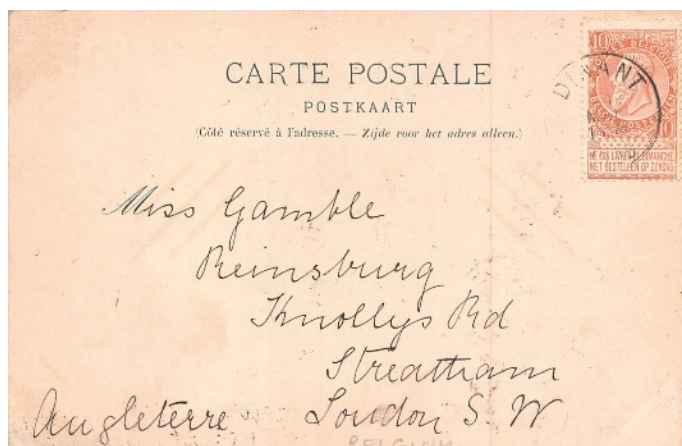 CARTE POSTALE
POSTKAART
(Côté réservé à l'adresse. — Zijde voor het adres alleen.)
10 10
DINANT
NE PAS LIVRER LE DIMANCHE
NIET BESTELLEN OP ZONDAG
Miss Gamble
Reinsburg
Knollys Rd
Streatham
Angleterre London S. W
BELGIUM